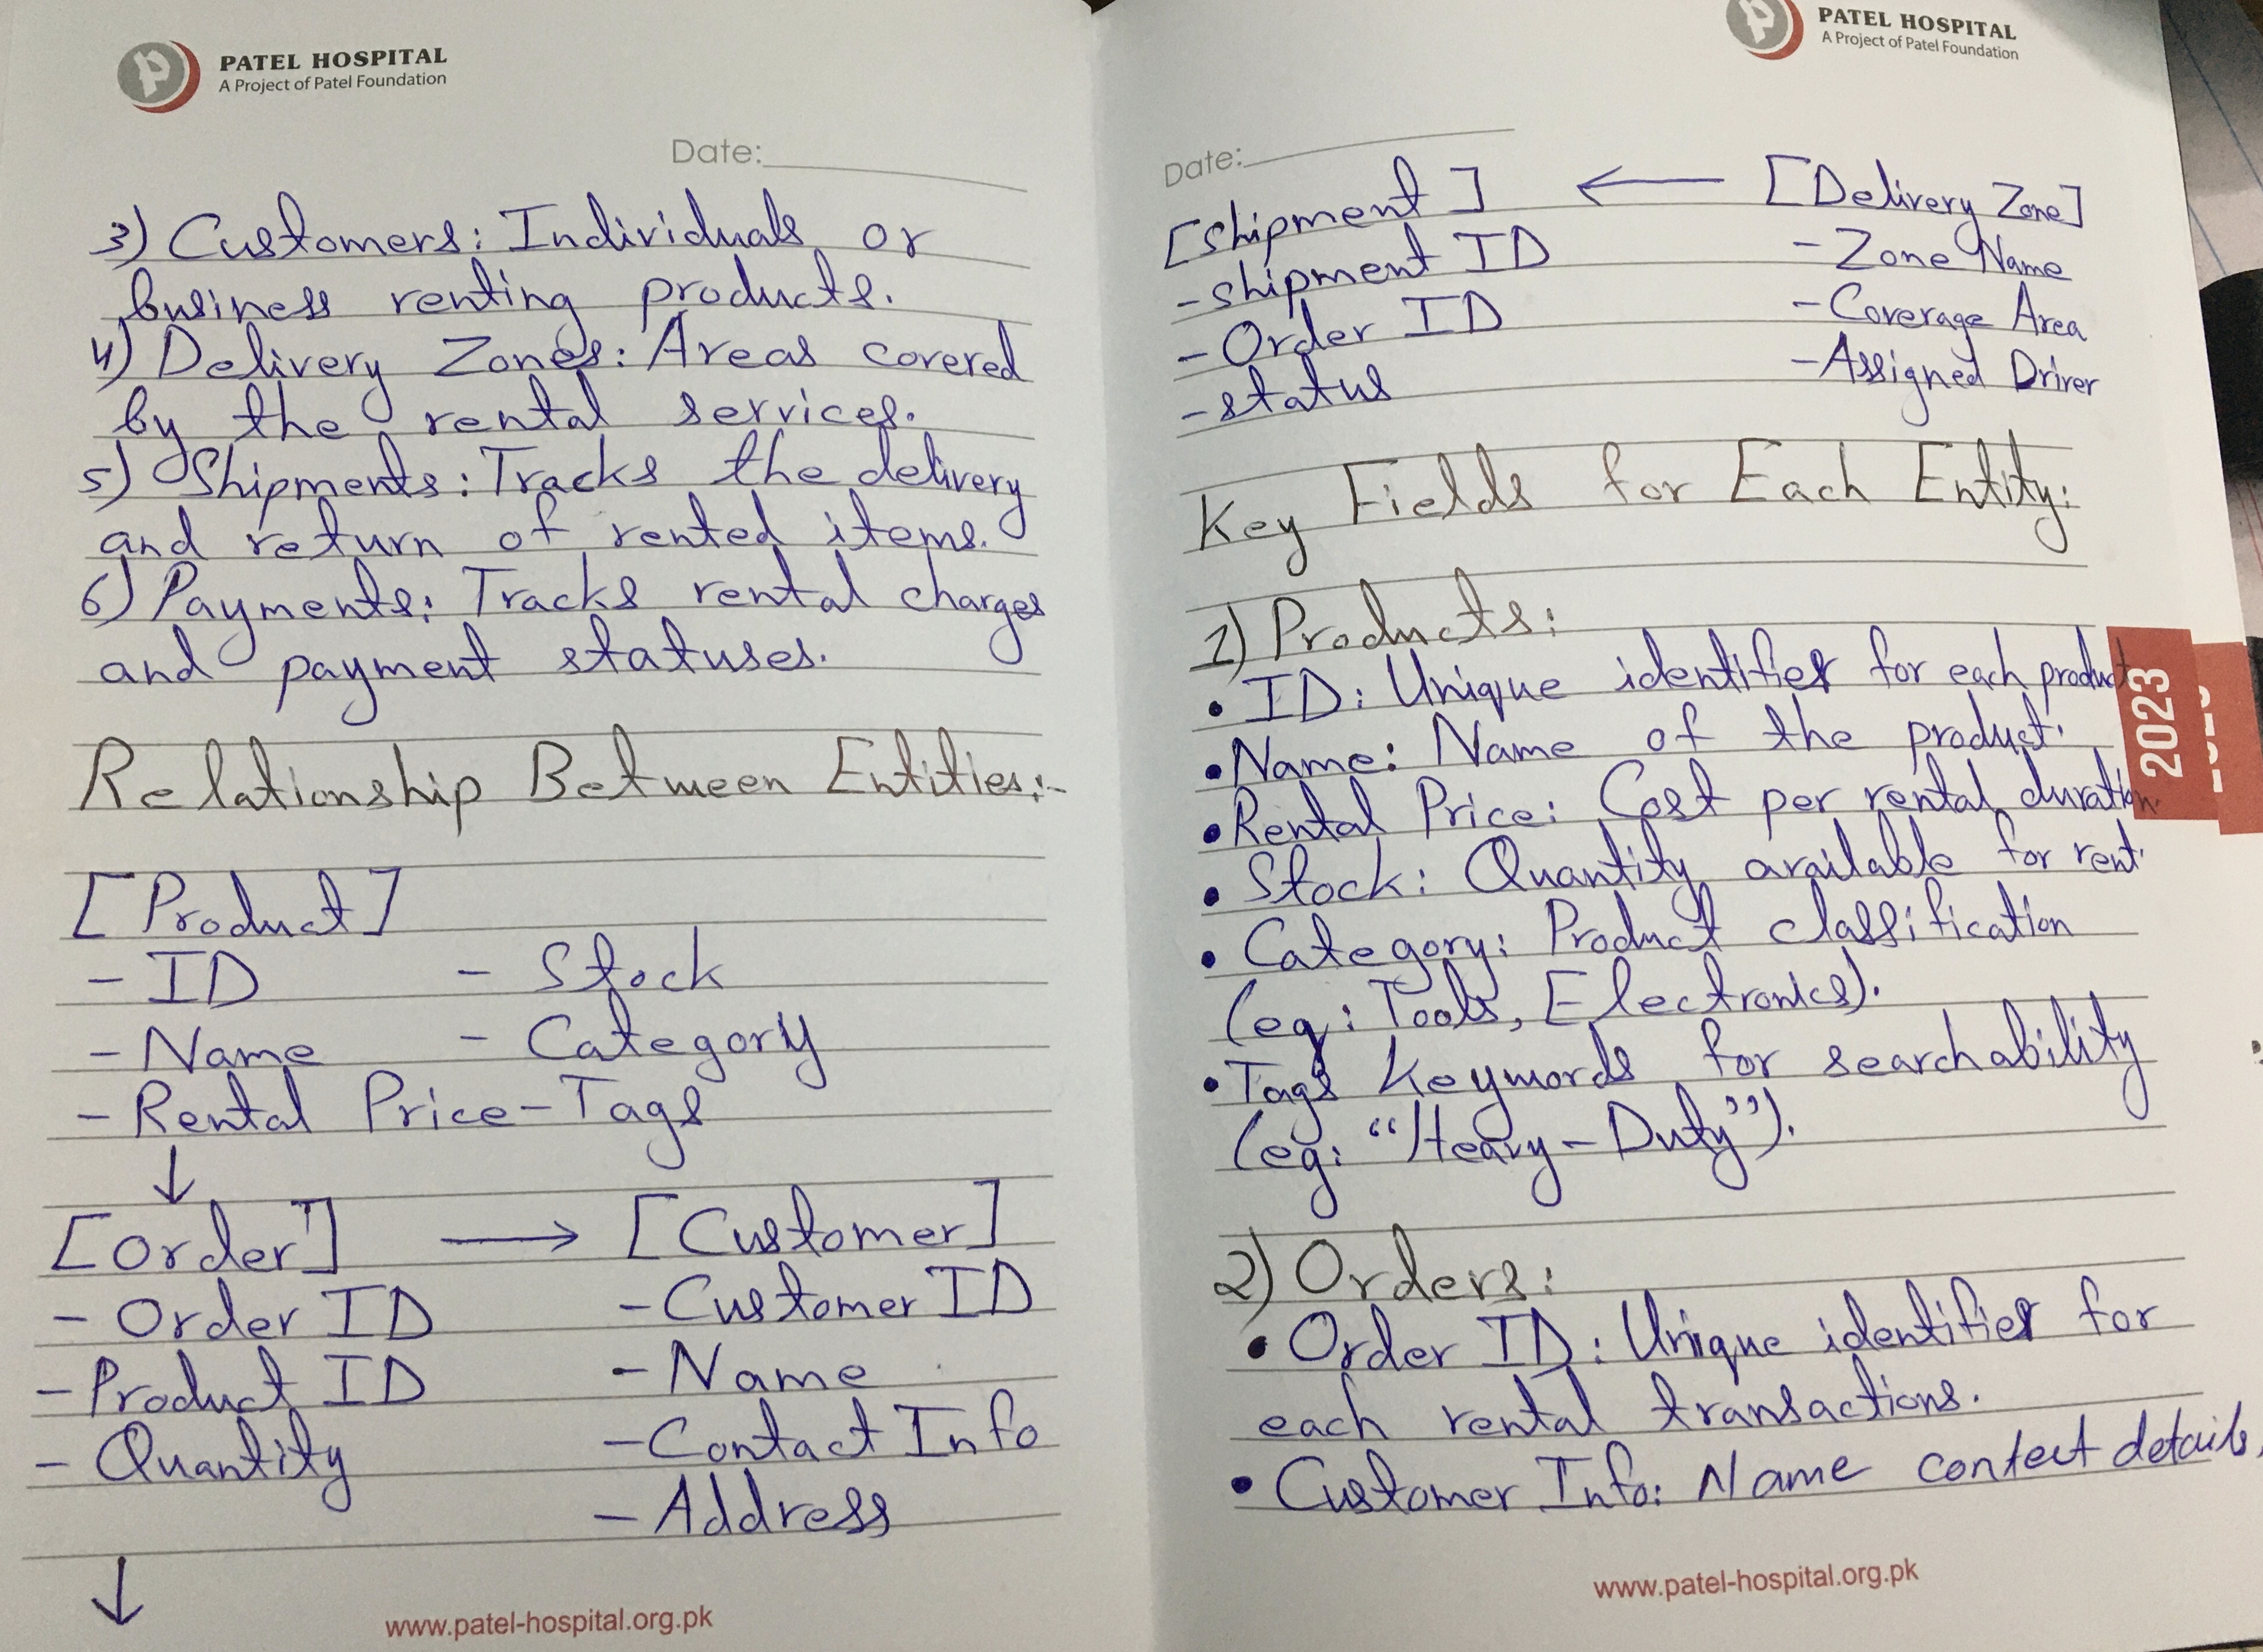 PATEL HOSPITAL
A Project of Patel Foundation
Date:
3) Customers: Individuals or
business renting products.
4) Delivery Zones: Areas covered
by the rental services.
5) Shipments: Tracks the delivery
and return of rented items.
6) Payments: Tracks rental charges
and payment statuses.
Relationship Between Entities:-
[Product]
- ID - Stock
- Name - Category
- Rental Price - Tags
↓
[Order] → [Customer]
- Order ID - Customer ID
- Product ID - Name
- Quantity - Contact Info
- Address
↓
www.patel-hospital.org.pk
PATEL HOSPITAL
A Project of Patel Foundation
Date:
[Shipment] ← [Delivery Zone]
- Shipment ID - Zone Name
- Order ID - Coverage Area
- status - Assigned Driver
Key Fields for Each Entity:
1) Products:
• ID: Unique identifier for each product
• Name: Name of the product.
• Rental Price: Cost per rental duration.
• Stock: Quantity available for rent.
• Category: Product classification
(eg: Tools, Electronics).
• Tags Keywords for searchability
(eg: "Heavy-Duty").
2) Orders:
• Order ID: Unique identifier for
each rental transactions.
• Customer Info: Name contect details,
www.patel-hospital.org.pk
2023